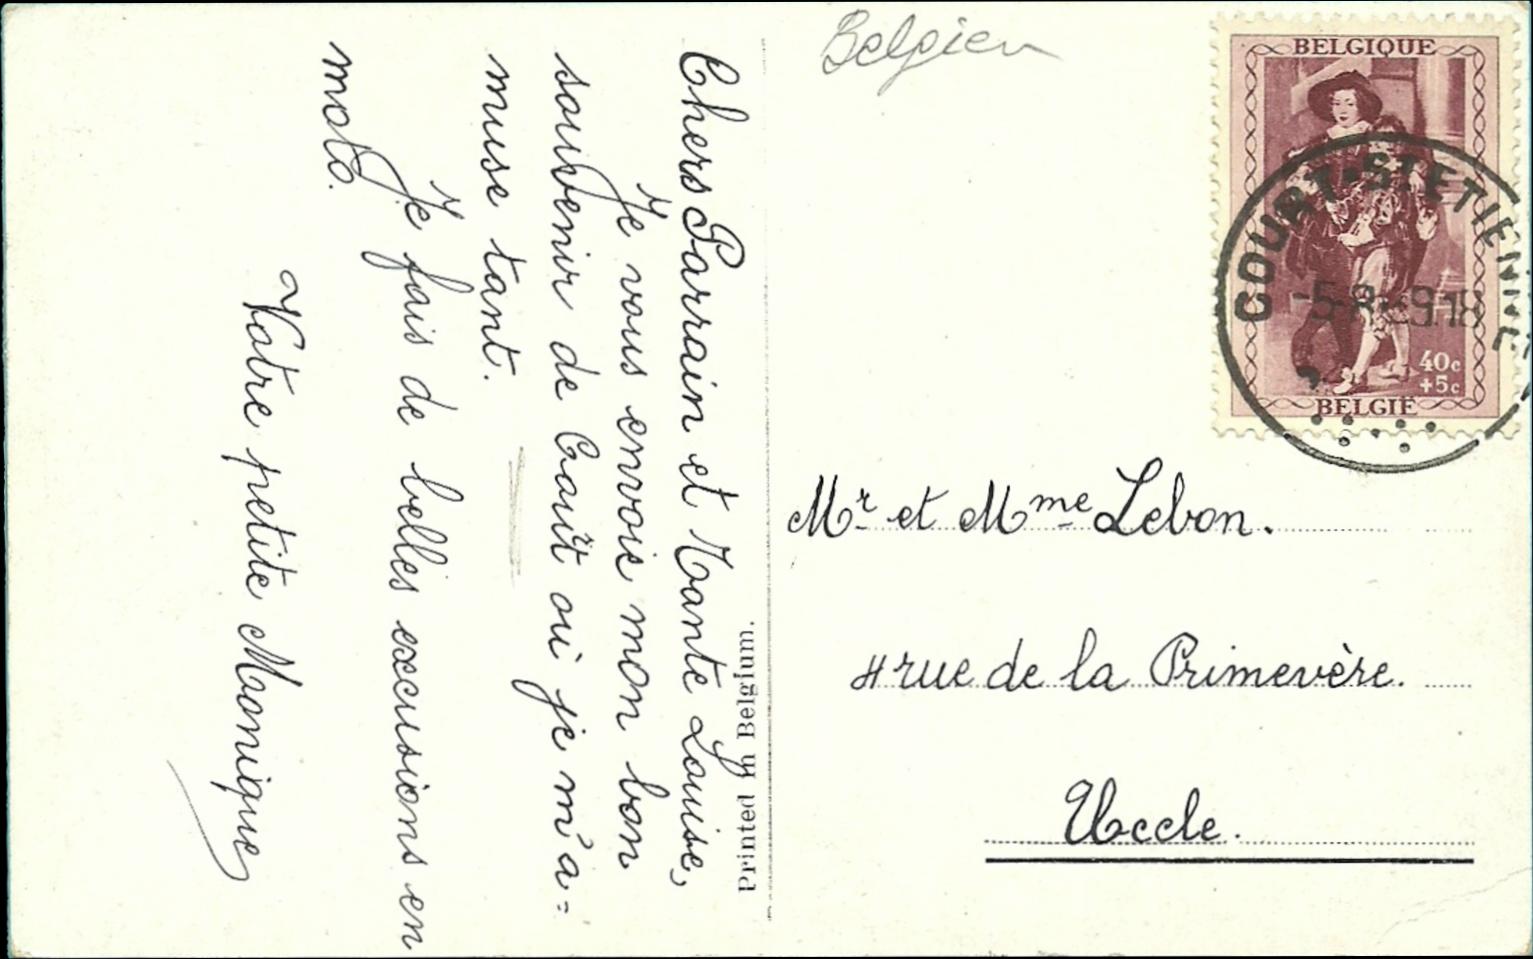 Chers Parrain et Tante Louise,
Je vous envoie mon bon
souvenir de Coaût où je m'a=
muse tant.
Je fais de belles excusions en
moto.
Votre petite Monique
Printed in Belgium.
Belgien
BELGIQUE
COURT-ST ETIENNE
40c
+5c
BELGIË
Mr et Mme Lebon.
4 rue de la Primevère.
Uccle.